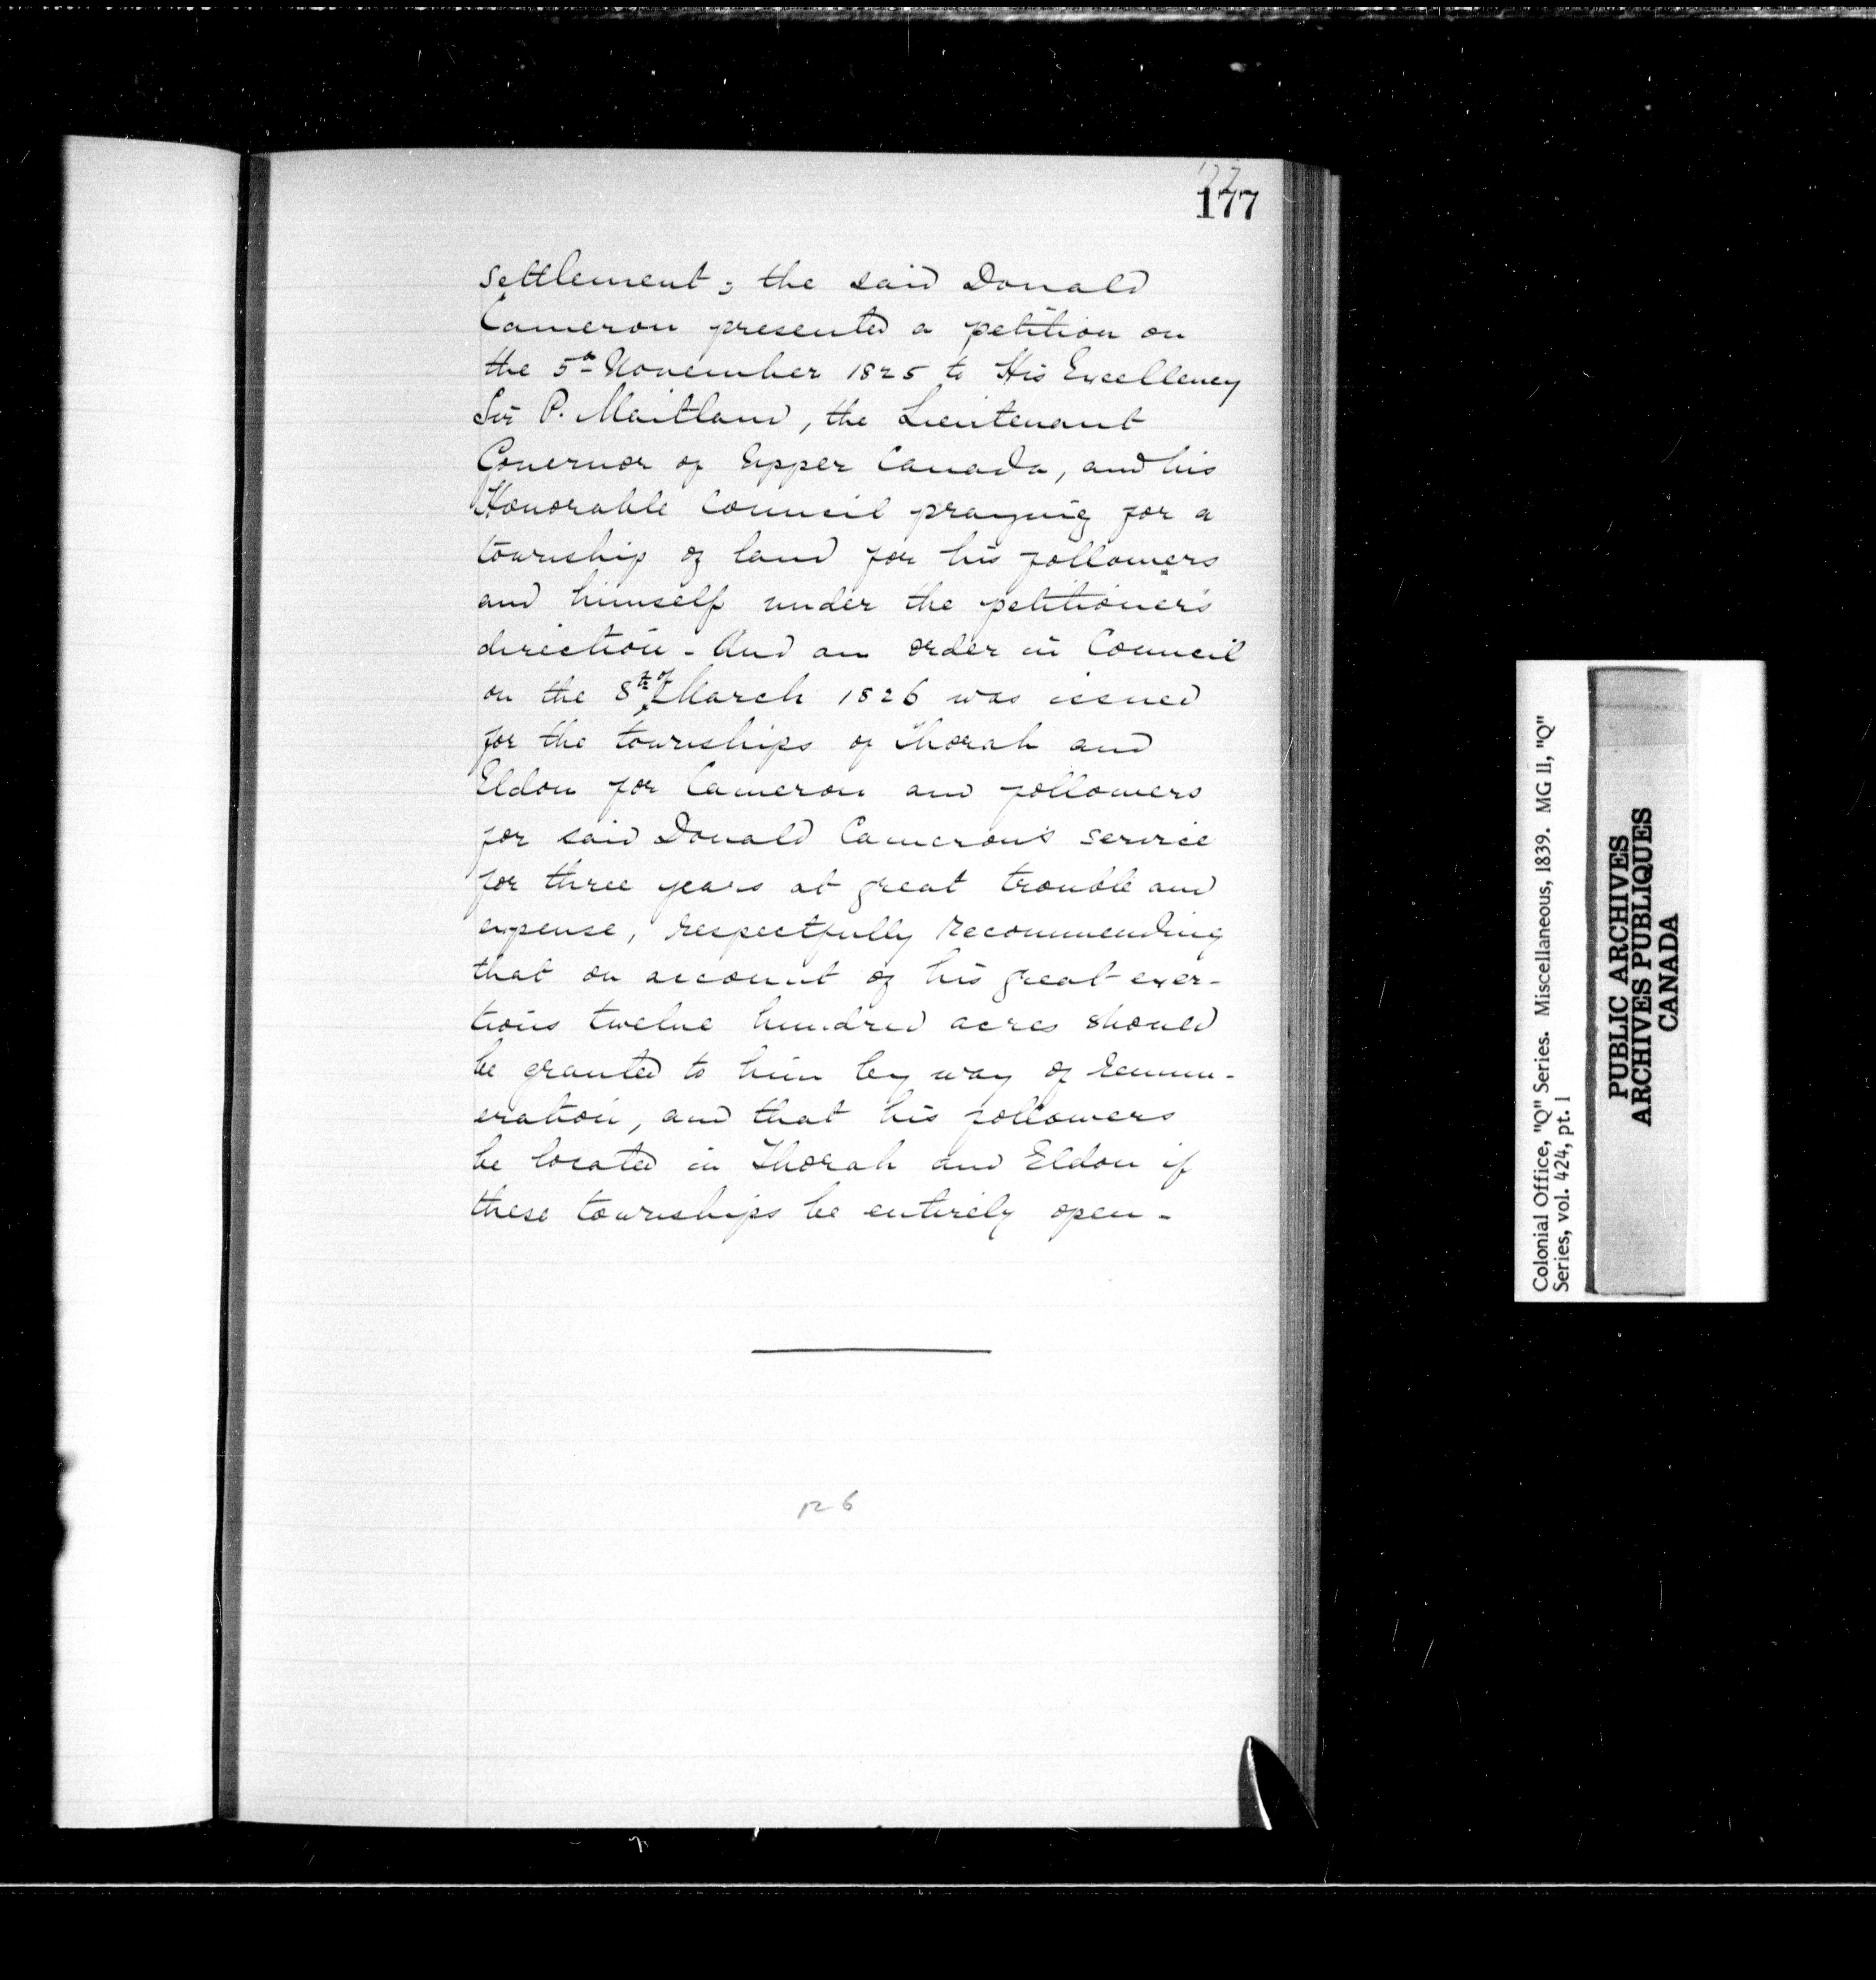 177
settlement; the said Donald
Cameron presented a petition on
the 5th November 1825 to His Excellency
Sir P. Maitland, the Lieutenant
Governor of Upper Canada, and his
Honorable Council praying for a
township of land for his followers
and himself under the petitioner's
direction - And an order in Council
on the 8th of March 1826 was issued
for the townships of Thorah and
Eldon for Cameron and followers
for said Donald Cameron's service
for three years at great trouble and
expense, respectfully recommending
that on account of his great exer-
tions twelve hundred acres should
be granted to him by way of remun-
eration, and that his followers
be located in Thorah and Eldon if
these townships be entirely open -
126
Colonial Office, "Q" Series. Miscellaneous, 1839. MG 11, "Q"
Series, vol. 424, pt. 1
PUBLIC ARCHIVES
ARCHIVES PUBLIQUES
CANADA